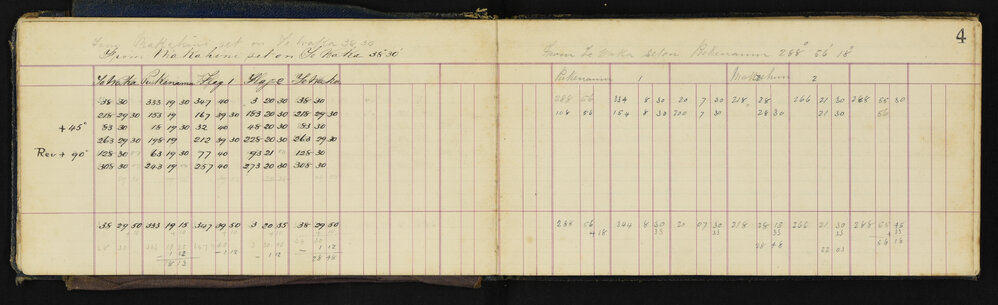 4
From Makahine set on Te Waka 38 30
From Makahine set on Te Waka 38° 30'
Te Waka Pukenamu Flag 1 Flag 2 Te Waka
38 30 333 19 30 347 40 3 20 30 38 30
218 29 30 153 19 167 39 30 183 20 30 218 29 30
+ 45° 83 30 18 19 30 32 40 48 20 30 83 30
263 29 30 198 19 212 39 30 228 20 30 263 29 30
Rev + 90° 128 30 63 19 30 77 40 93 21 128 30
308 30 243 19 257 40 273 20 30 308 30
38 29 50 333 19 15 347 39 50 3 20 35 38 29 50
1 12 - 1 12 - 1 12 - 1 12
18 13 28 48
From Te Waka set on Pukenamu 288° 56' 18"
Pukenamu 1 2
288 56 334 8 30 20 7 30 218 28 266 21 30 288 55 30
108 56 154 8 30 200 7 30 28 30 21 30 56
288 56 344 8 30 20 07 30 218 28 15 266 21 30 288 55 45
+ 18 33 33 33
28 48 22 03 56 18